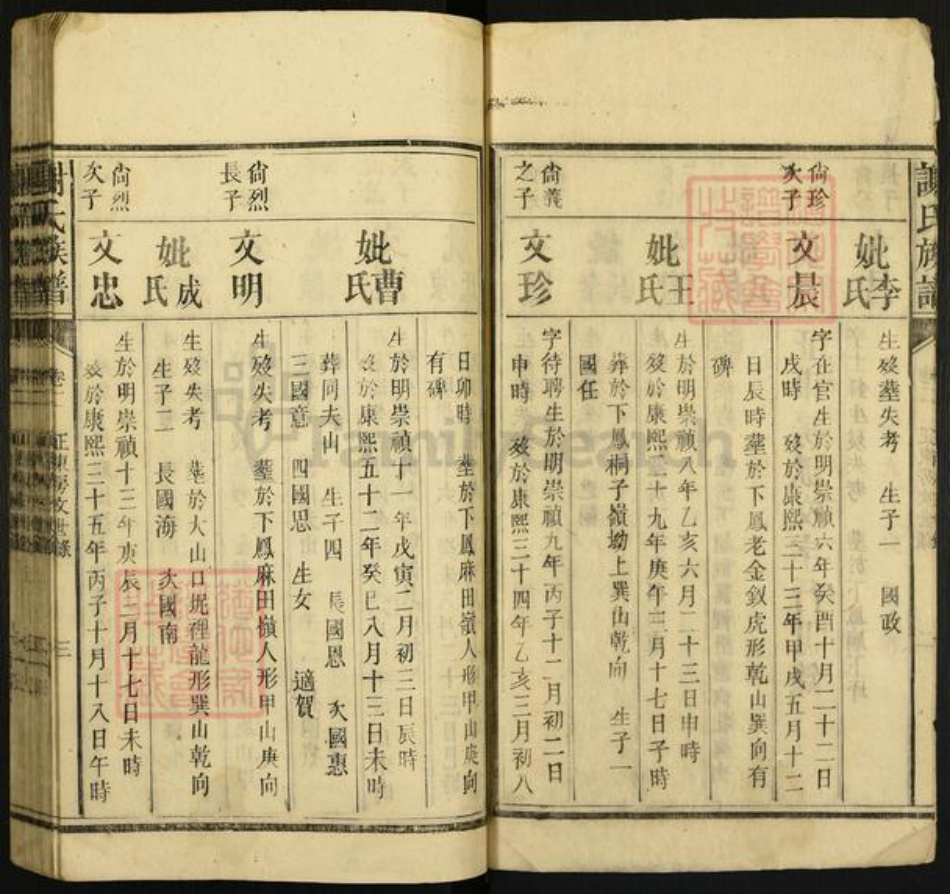 謝氏族譜
妣李氏
生歿塟失考 生子一 國政
尙珍次子
文晨
字在官生於明崇禎六年癸酉十月二十二日
戌時 歿於康熙三十三年甲戌五月十二
日辰時塟於下鳳老金釵虎形乾山巽向有
碑
妣王氏
生於明崇禎八年乙亥六月二十三日申時
歿於康熙二十九年庚午三月十七日子時
葬於下鳳桐子嶺坳上巽山乾向 生子一
國任
尙義之子
文珍
字待聘生於明崇禎九年丙子十二月初二日
申時 歿於康熙三十四年乙亥三月初八
日卯時 塟於下鳳麻田嶺人形甲山庚向
有碑
妣曹氏
生於明崇禎十一年戊寅二月初三日辰時
歿於康熙五十二年癸巳八月十三日未時
葬同夫山 生子四 長國恩 次國惠
三國意 四國思 生女 適賀
尙烈長子
文明
生歿失考 塟於下鳳麻田嶺人形甲山庚向
妣成氏
生歿失考 塟於大山口坭裡龍形巽山乾向
生子二 長國海 次國南
尙烈次子
文忠
生於明崇禎十三年庚辰二月十七日未時
歿於康熙三十五年丙子十月十八日午時
謝氏族譜
卷一
三